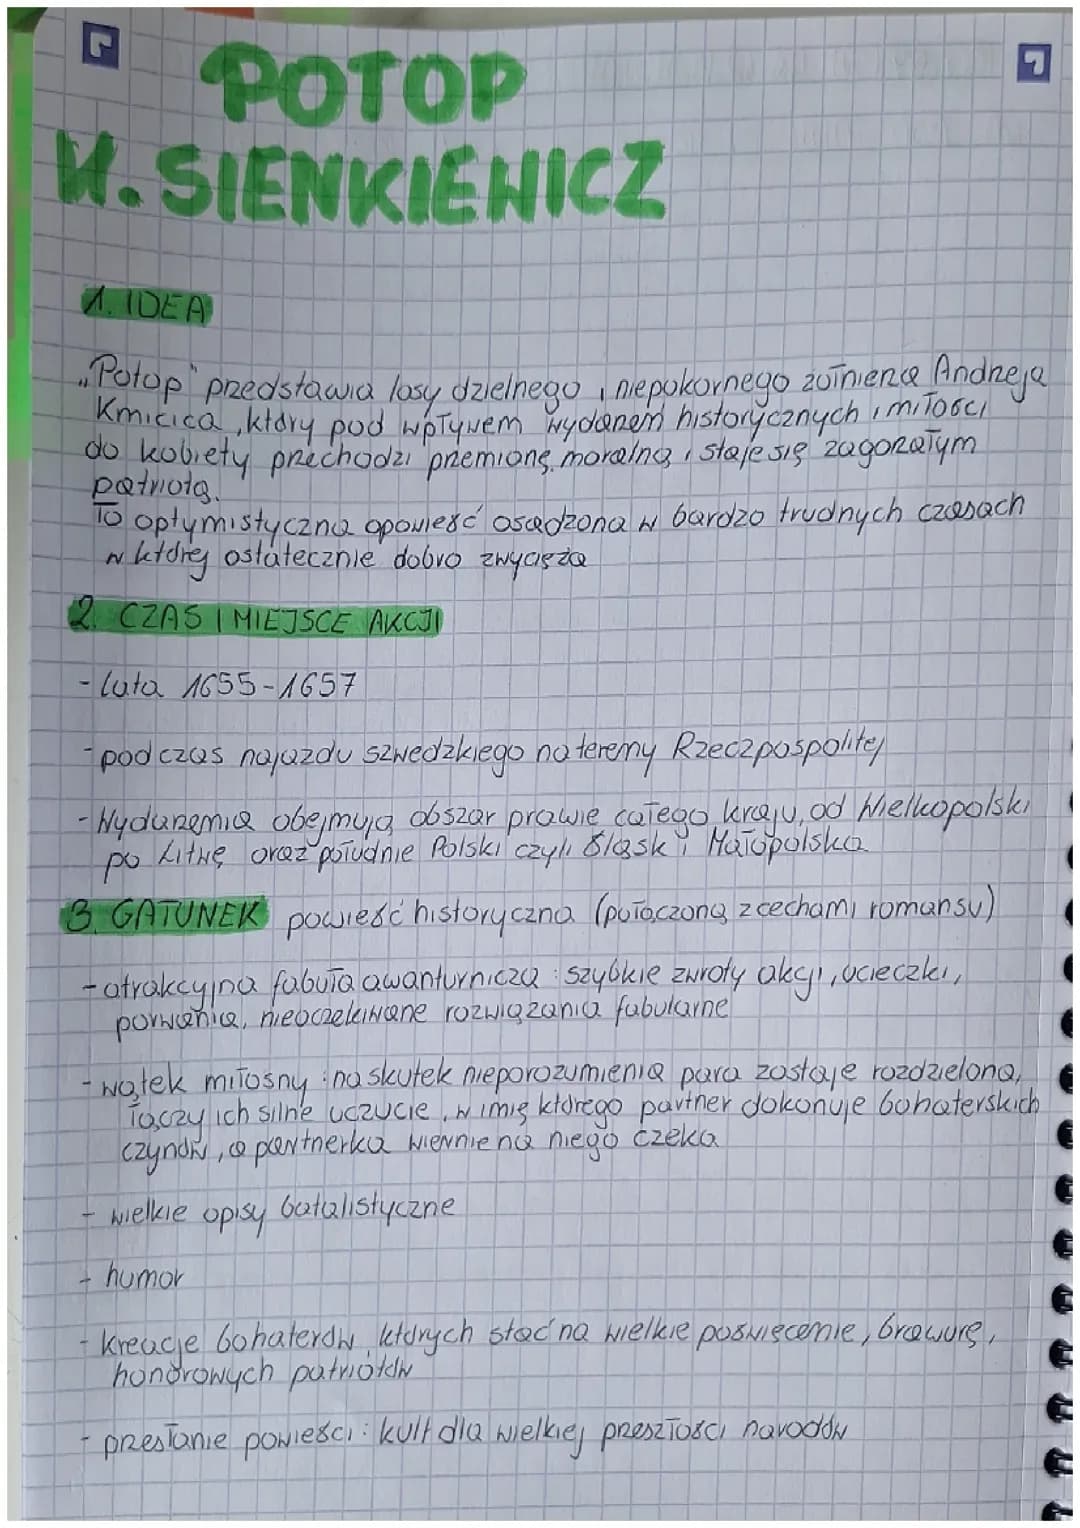 POTOP
H. SIENKIEWICZ
1. IDEA
„Potop" przedstawia losy dzielnego i niepokornego żołnierza Andrzeja
Kmicica, który pod wpływem wydarzeń historycznych i miłości
do kobiety przechodzi przemianę moralną i staje się zagorzałym
patriotą.
To optymistyczna opowieść osadzona w bardzo trudnych czasach
w której ostatecznie dobro zwycięża
2. CZAS I MIEJSCE AKCJI
- lata 1655-1657
- podczas najazdu szwedzkiego na tereny Rzeczpospolitej
- Wydarzenia obejmują obszar prawie całego kraju, od Wielkopolski
po Litwę oraz południe Polski czyli Śląsk i Małopolska
3. GATUNEK powieść historyczna (połączona z cechami romansu)
- atrakcyjna fabuła awanturnicza: szybkie zwroty akcji, ucieczki,
porwania, nieoczekiwane rozwiązania fabularne
- wątek miłosny: na skutek nieporozumienia para zostaje rozdzielona,
łączy ich silne uczucie, w imię którego partner dokonuje bohaterskich
czynów, a partnerka wiernie na niego czeka
- wielkie opisy batalistyczne
- humor
- kreacje bohaterów, których stać na wielkie poświęcenie, brawurę,
honorowych patriotów
- przesłanie powieści: kult dla wielkiej przeszłości narodów